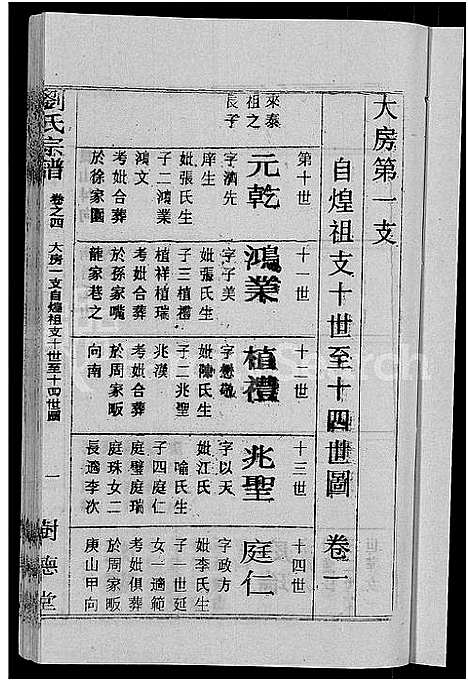 大房第一支
自煌祖支十世至十四世圖 卷一
第十世
來泰
祖之
長子
元乾
字濟先
庠生
妣張氏生
子二鴻業
鴻文
考妣合葬
於徐家園
十一世
鴻業
字子美
妣張氏生
子三植禮
植祥植瑞
考妣合葬
於孫家嘴
龍家巷之
十二世
植禮
字懋敬
妣陳氏生
子二兆聖
兆漢
考妣合葬
於周家畈
向南
十三世
兆聖
字以天
妣江氏
喻氏生
子四庭仁
庭璧庭瑞
庭珠女二
長適李次
十四世
庭仁
字政方
妣李氏生
子一世延
女一適範
考妣俱葬
於周家畈
庚山甲向
劉氏宗譜 卷之四 大房一支自煌祖支十世至十四世圖 一 樹德堂